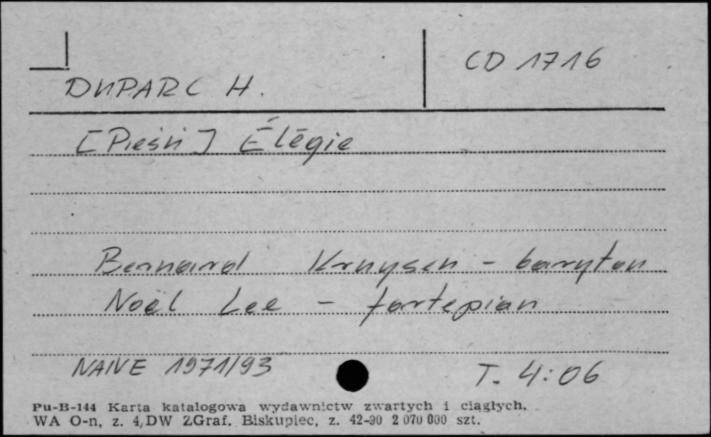 CD 1716
DUPARC H.
[Pieśń] Élégie
Bernard Kruysen - baryton
Noël Lee - fortepian
NAIVE 1971/93 T. 4:06
Pu-B-144 Karta katalogowa wydawnictw zwartych i ciągłych.
WA O-n, z. 4, DW ZGraf. Biskupiec, z. 42-90 2 070 000 szt.